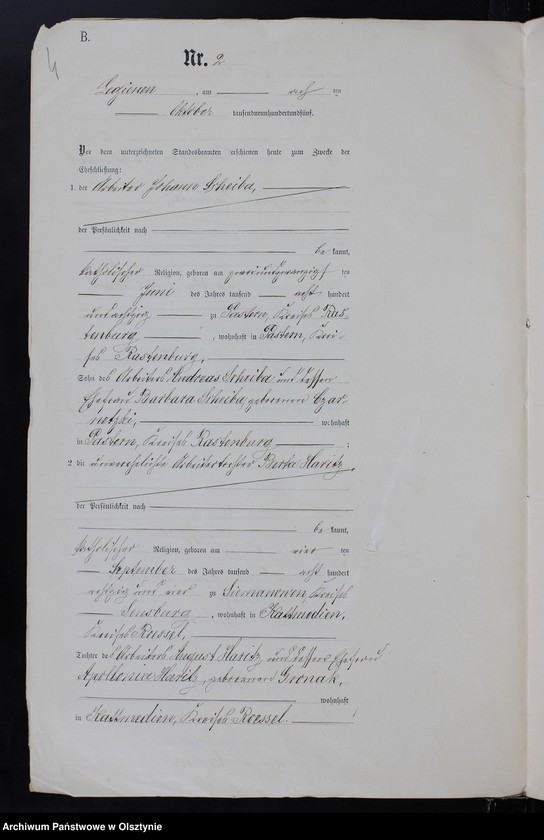 B.
4
Nr. 2
Legienen, am ten
Oktober tausendneunhundertundfünf.
Vor dem unterzeichneten Standesbeamten erschienen heute zum Zwecke der
Eheschließung:
1. der Arbeiter Johann Scheiba,
der Persönlichkeit nach
be kannt,
katholischer Religion, geboren am zweiundzwanzigsten
Juni des Jahres tausend acht hundert
undachtzig zu Pastern, Kreises Ras-
tenburg, wohnhaft in Pastern, Krei-
ses Rastenburg,
Sohn des Arbeiters Andreas Scheiba und dessen
Ehefrau Barbara Scheiba geborenen Czar-
netzki, wohnhaft
in Pastern, Kreises Rastenburg ;
2. die unverehelichte Arbeitertochter Berta Haritz
der Persönlichkeit nach
be kannt,
katholischer Religion, geboren am vier ten
September des Jahres tausend acht hundert
achtzig und vier zu Siemanowen, Kreises
Sensburg, wohnhaft in Kattmedien,
Kreises Roessel,
Tochter des Arbeiters August Haritz und dessen Ehefrau
Apollonia Haritz, geborenen Gronak,
wohnhaft
in Kattmedien, Kreises Roessel.
Archiwum Państwowe w Olsztynie